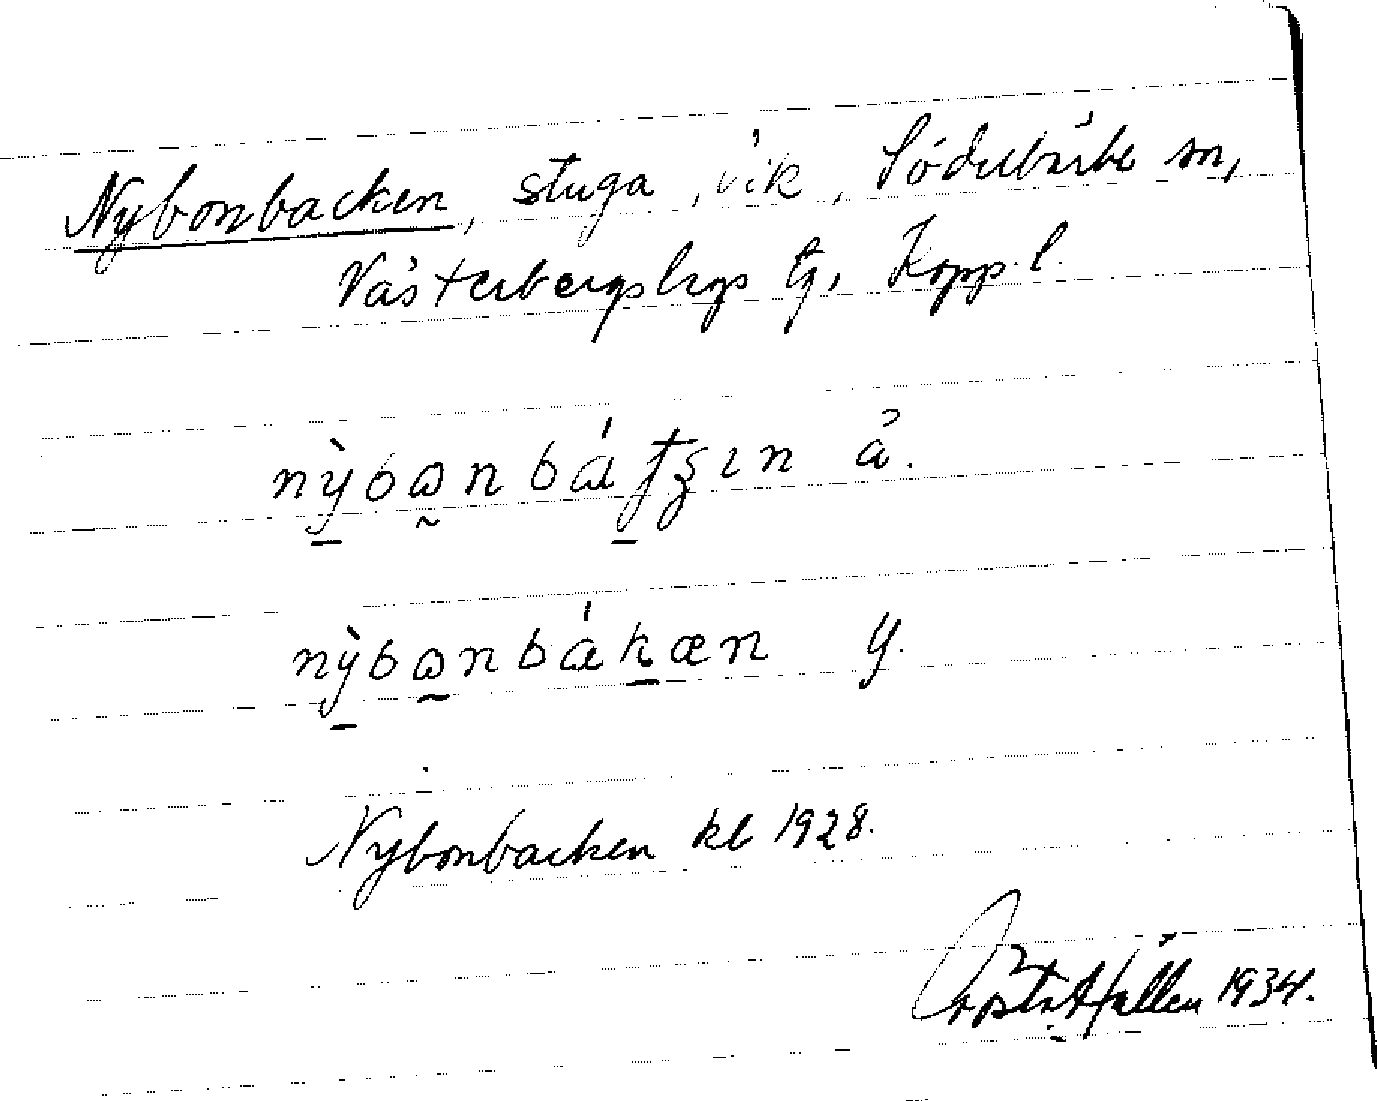 Nybonbacken, stuga, vik, Söderbärke sn,
Västerbergslags tg, Kopp. l.
nỳbꞷnbá
nỳbꞷnbákæn y.
Nybonbacken kb 1928.
Hallén 1934.